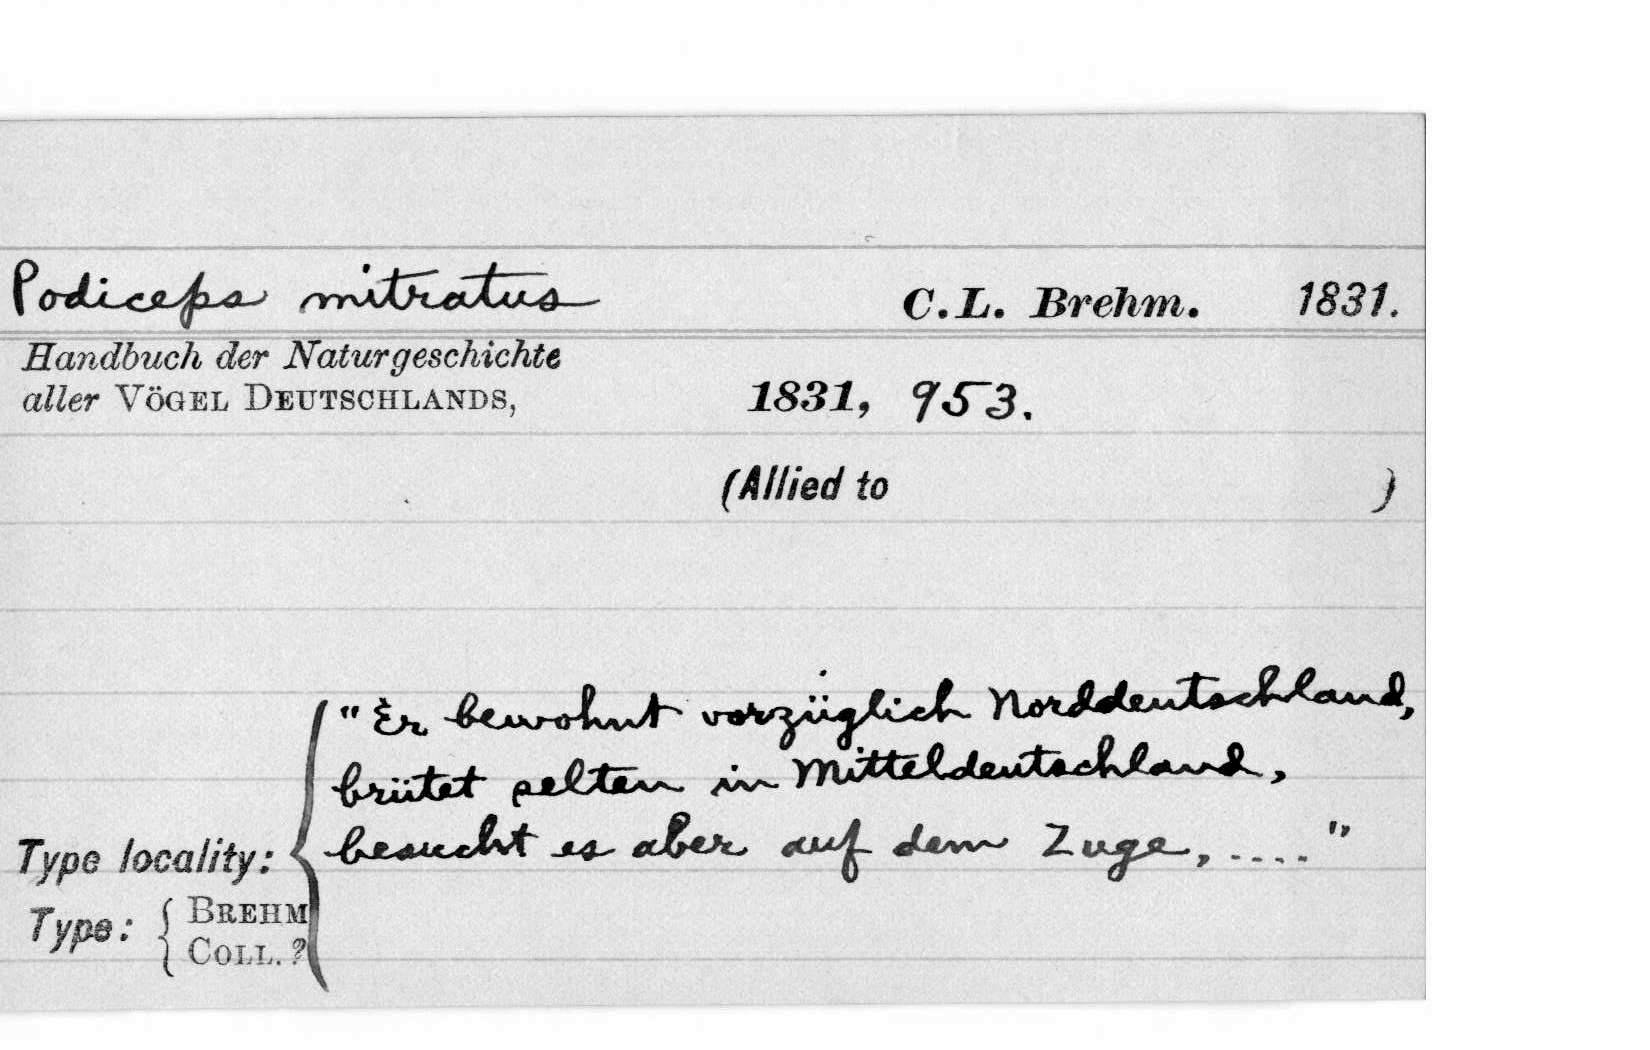 Podiceps mitratus C.L. Brehm. 1831.
Handbuch der Naturgeschichte
aller VÖGEL DEUTSCHLANDS, 1831, 953.
(Allied to )
"Er bewohnt vorzüglich Norddeutschland,
brütet selten in Mitteldeutschland,
besucht es aber auf dem Zuge, ....."
Type locality:
Type: { BREHM
COLL. ?